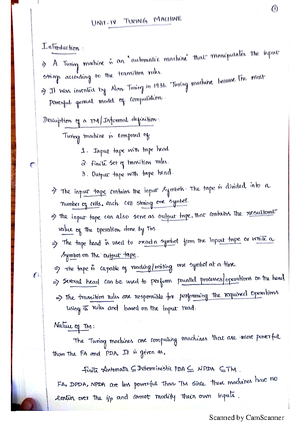 ①
UNIT-IV TURING MACHINE
Introduction:
→ A Turing machine is an "automatic machine" that manipulates the input
strings according to the transition rules.
→ It was invented by Alan Turing in 1936. Turing machine became the most
powerful general model of computation.
Description of a TM/Informal definition:
Turing machine is composed of
1. Input tape with tape head.
2. Finite set of transition rules.
3. Output tape with tape head.
→ The input tape contains the input symbols. The tape is divided into a
number of cells, each can string one symbol.
→ The input tape can also serve as output tape, that contains the resultant
value of the operation done by TM.
→ The tape head is used to read a symbol from the input tape or write a
symbol on the output tape.
→ The tape is capable of reading/writing one symbol at a time.
→ Several head can be used to perform parallel processes/operations on the head.
→ The transition rules are responsible for performing the required operations
using the rules and based on the input read.
Nature of TM:
The Turing machines are computing machines that are more powerful
than the FA and PDA. It is given as,
finite Automata ⊆ Deterministic PDA ⊆ NPDA ⊆ TM.
FA, DPDA, NPDA are less powerful than TM since these machines have no
control over the i/p and cannot modify their own inputs.
Scanned by CamScanner